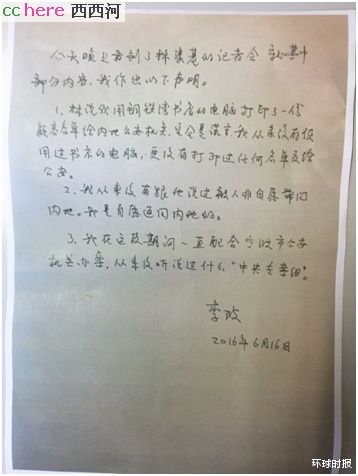 cchere 西西河
今天晚上看到了林荣基的记者会，就其中
部分内容，我作出以下声明。
1. 林说我用铜锣湾书店的电脑打印了一份
顾客名单给内地公安机关，完全是谎言，我从来没有使
用过书店的电脑，更没有打印过任何名单交给
公安。
2. 我从来没有跟他说过被人非自愿带回
内地。我是自愿返回内地的。
3. 我在这段期间一直配合宁波市公安
机关办案，从来没听说过什么“中央专案组”。
李波
2016年6月16日
环球时报